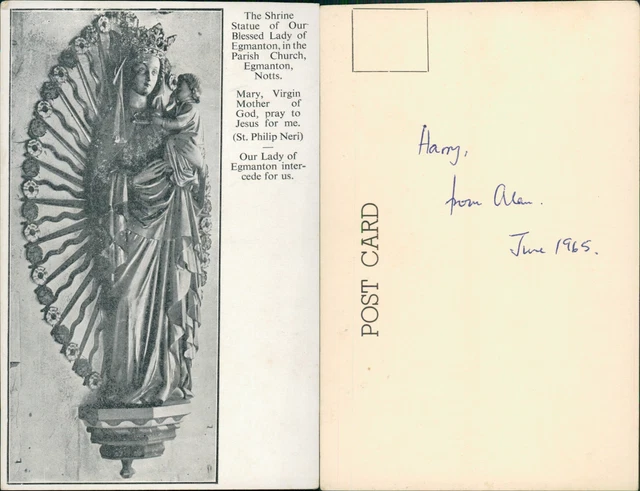 The Shrine
Statue of Our
Blessed Lady of
Egmanton, in the
Parish Church,
Egmanton,
Notts.
Mary, Virgin
Mother of
God, pray to
Jesus for me.
(St. Philip Neri)
Our Lady of
Egmanton inter-
cede for us.
POST CARD
Harry,
from Alan.
June 1965.